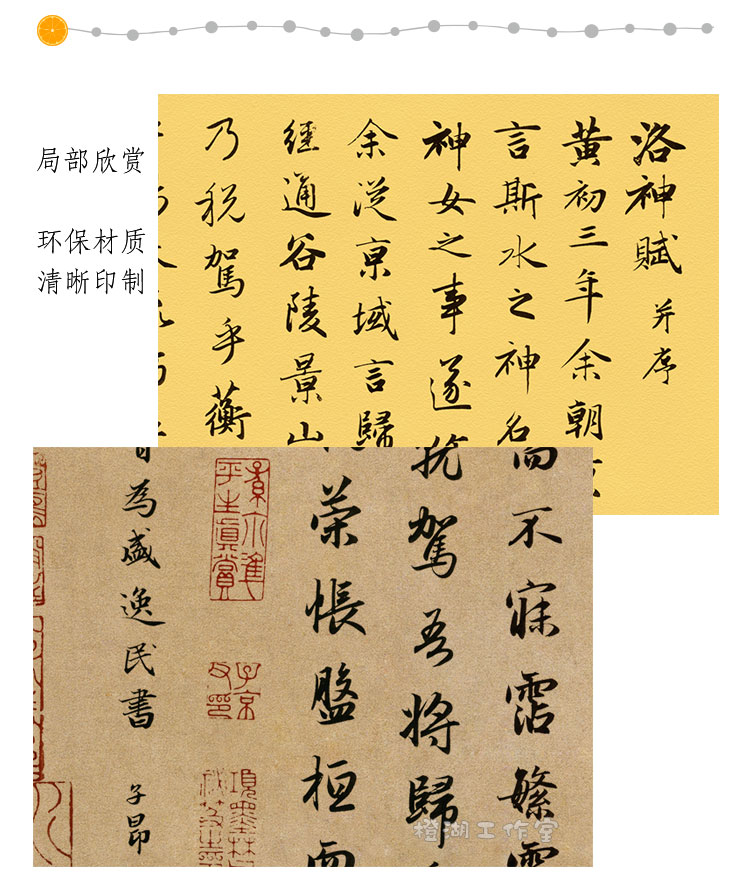 局部欣赏
环保材质
清晰印制
洛神賦 并序
黄初三年余朝
言斯水之神名
神女之事遂
余從京域言歸
經通谷陵景山
乃税駕乎蘅
而不寐霑繁
就駕吾將歸
策悵盤桓而
平生真賞
子京
父印
項墨林
為盛逸民書 子昂
橙湖工作室